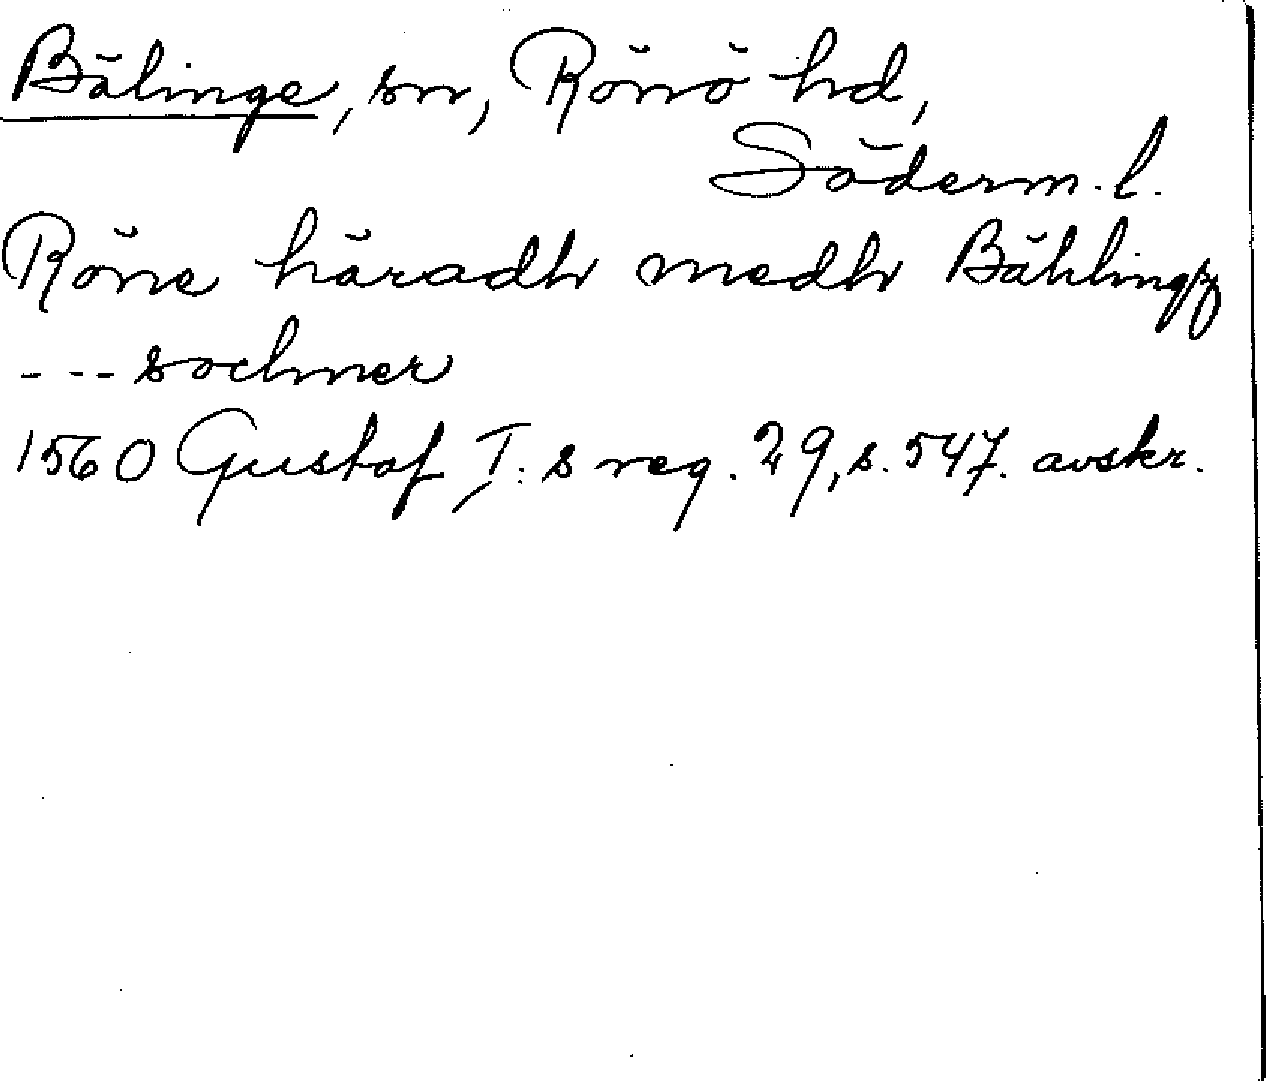 Bälinge, sn, Rönö hd,
Söderm. l.
Röne häradh medh
--- sochner
1560 Gustof I:s reg. 29, s. 547. avskr.